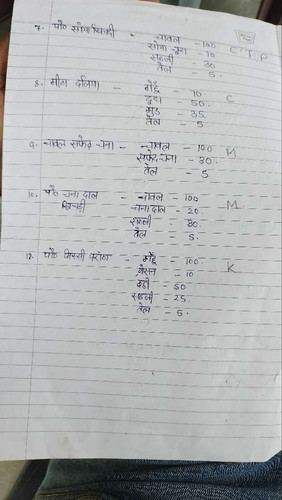 7. पौ० सोयाखिचड़ी - चावल - 100 C.T.P
सोया चूरा - 10
सब्जी - 30
तेल - 5.
8. मीठा दलिया - गेहूँ - 70. C
दूध - 50.
गुड़ - 35.
तेल - 5
9. चावल सफेद चना - चावल - 100 M
सफेद चना - 30.
तेल - 5
10. पौ० चना दाल - चावल - 100 M.
खिचड़ी चना दाल - 20
सब्जी - 30.
तेल - 5.
12. पौ० मिस्सी परांठा - गेहूँ - 100. K
बेसन - 10
दही - 50
सब्जी - 25
तेल - 5.